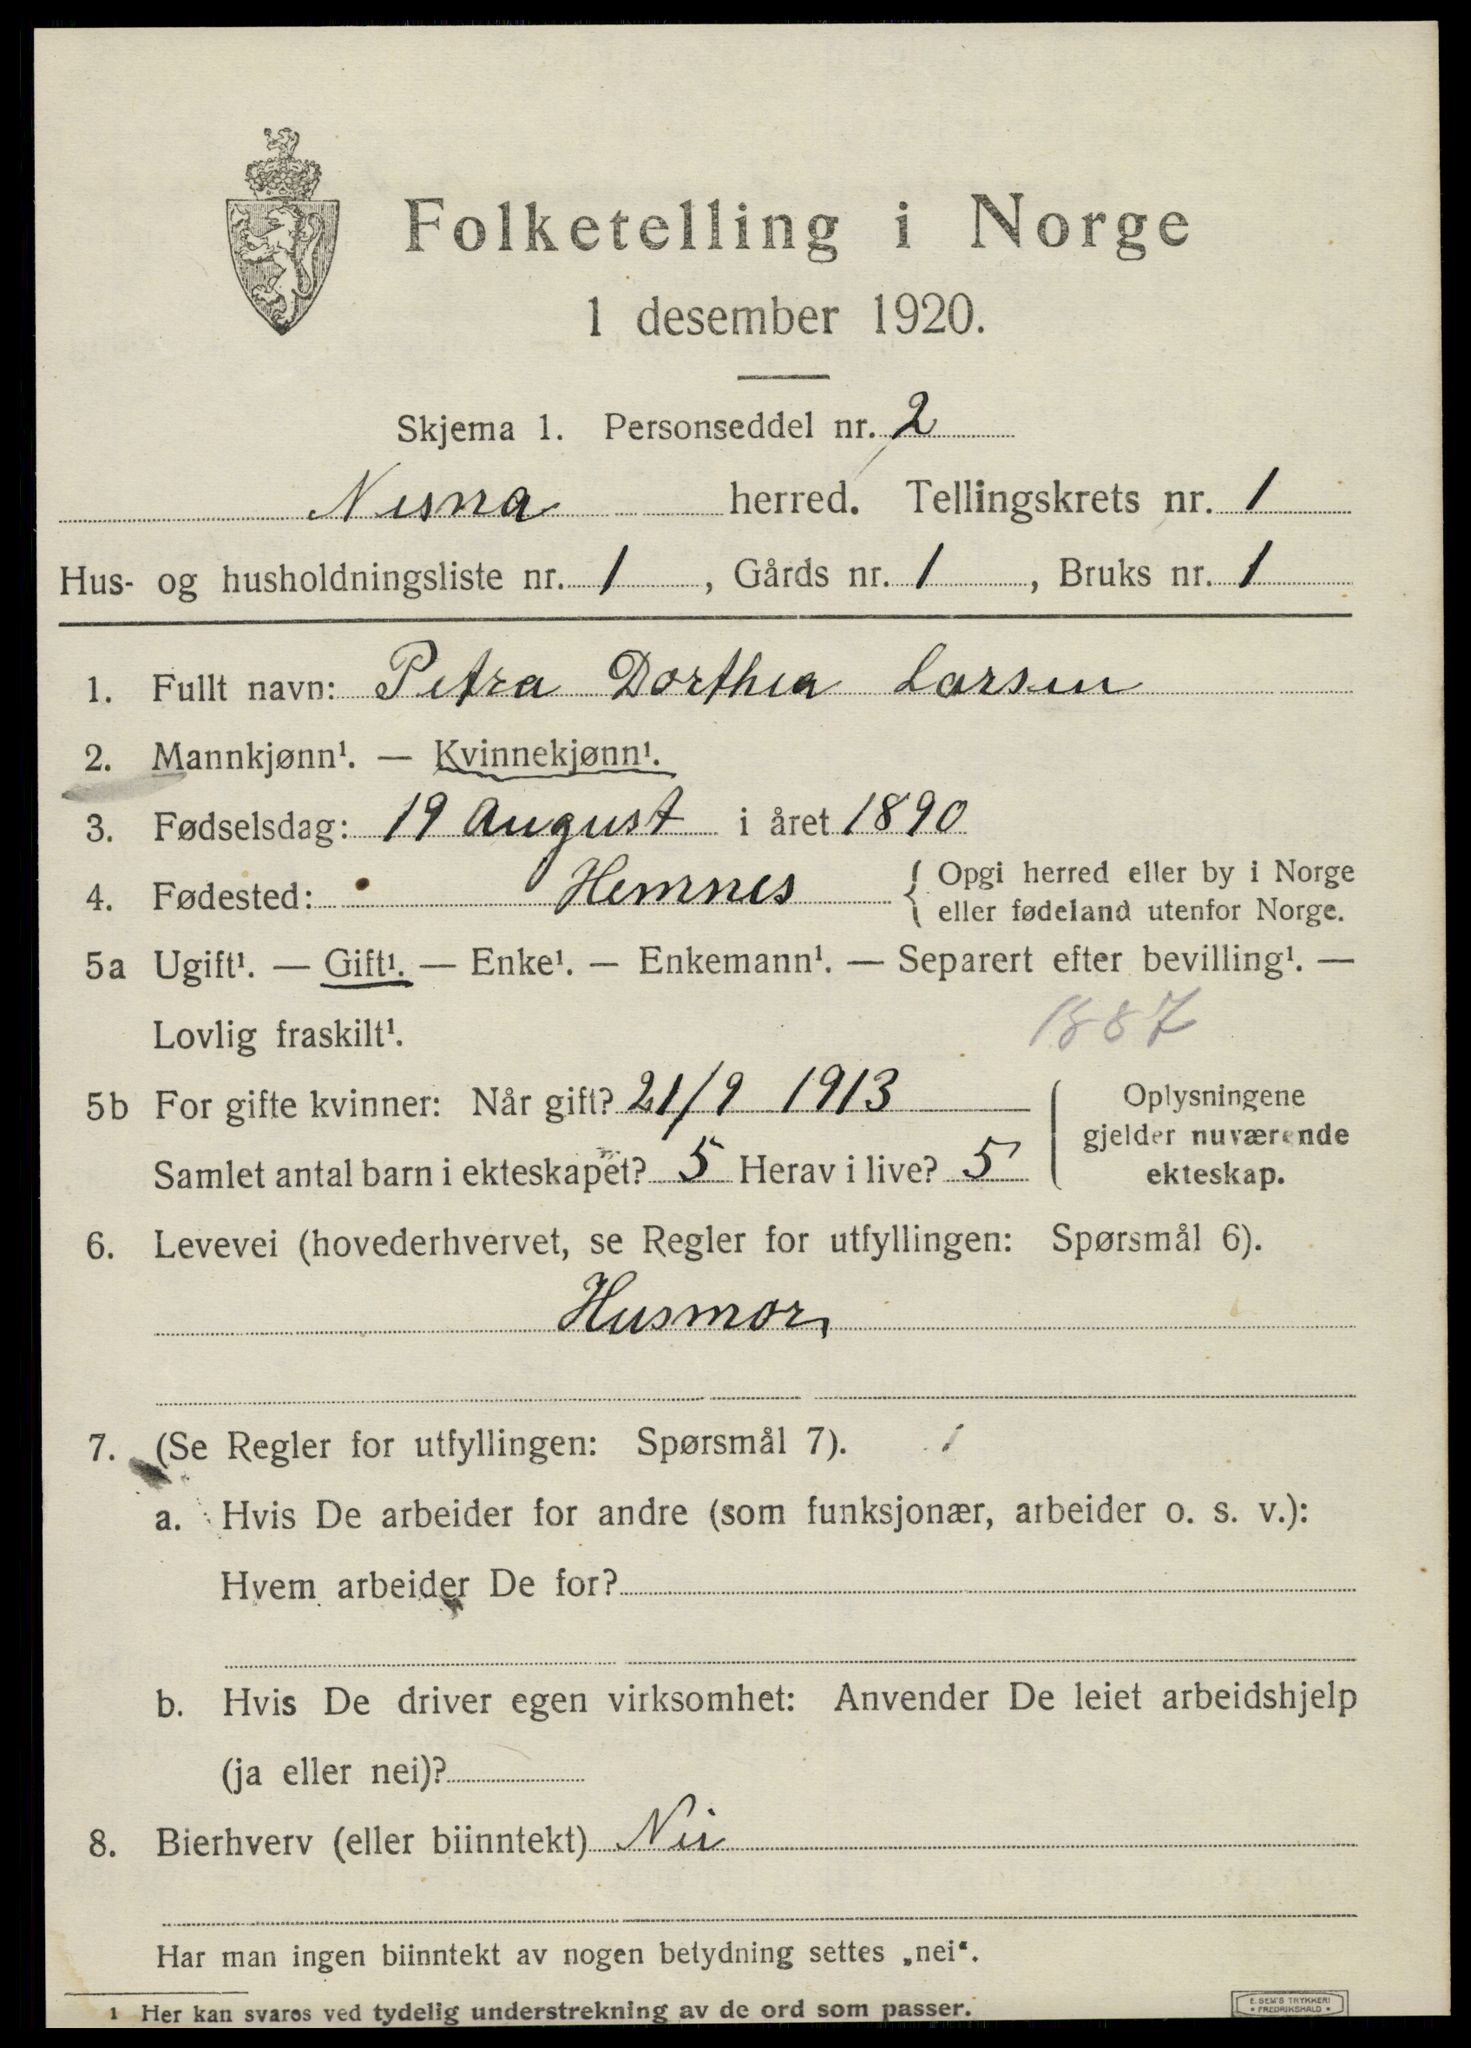 Folketelling i Norge
1 desember 1920.
Skjema 1. Personseddel nr. 2
Nesna herred. Tellingskrets nr. 1
Hus- og husholdningsliste nr. 1, Gårds nr. 1, Bruks nr. 1
1. Fullt navn: Petra Dorthea Larsen
2. Mannkjønn¹. — Kvinnekjønn¹.
3. Fødselsdag: 19 August i året 1890
4. Fødested: Hemnes { Opgi herred eller by i Norge
eller fødeland utenfor Norge.
5a Ugift¹. — Gift¹. — Enke¹. — Enkemann¹. — Separert efter bevilling¹. —
Lovlig fraskilt¹. 1887
5b For gifte kvinner: Når gift? 21/9 1913
Samlet antal barn i ekteskapet? 5 Herav i live? 5
Oplysningene
gjelder nuværende
ekteskap.
6. Levevei (hovederhvervet, se Regler for utfyllingen: Spørsmål 6).
Husmor
7. (Se Regler for utfyllingen: Spørsmål 7).
a. Hvis De arbeider for andre (som funksjonær, arbeider o. s. v.):
Hvem arbeider De for?
b. Hvis De driver egen virksomhet: Anvender De leiet arbeidshjelp
(ja eller nei)?
8. Bierhverv (eller biinntekt) Nei
Har man ingen biinntekt av nogen betydning settes „nei“.
1 Her kan svares ved tydelig understrekning av de ord som passer.
E. SEM'S TRYKKERI
• FREDRIKSHALD •